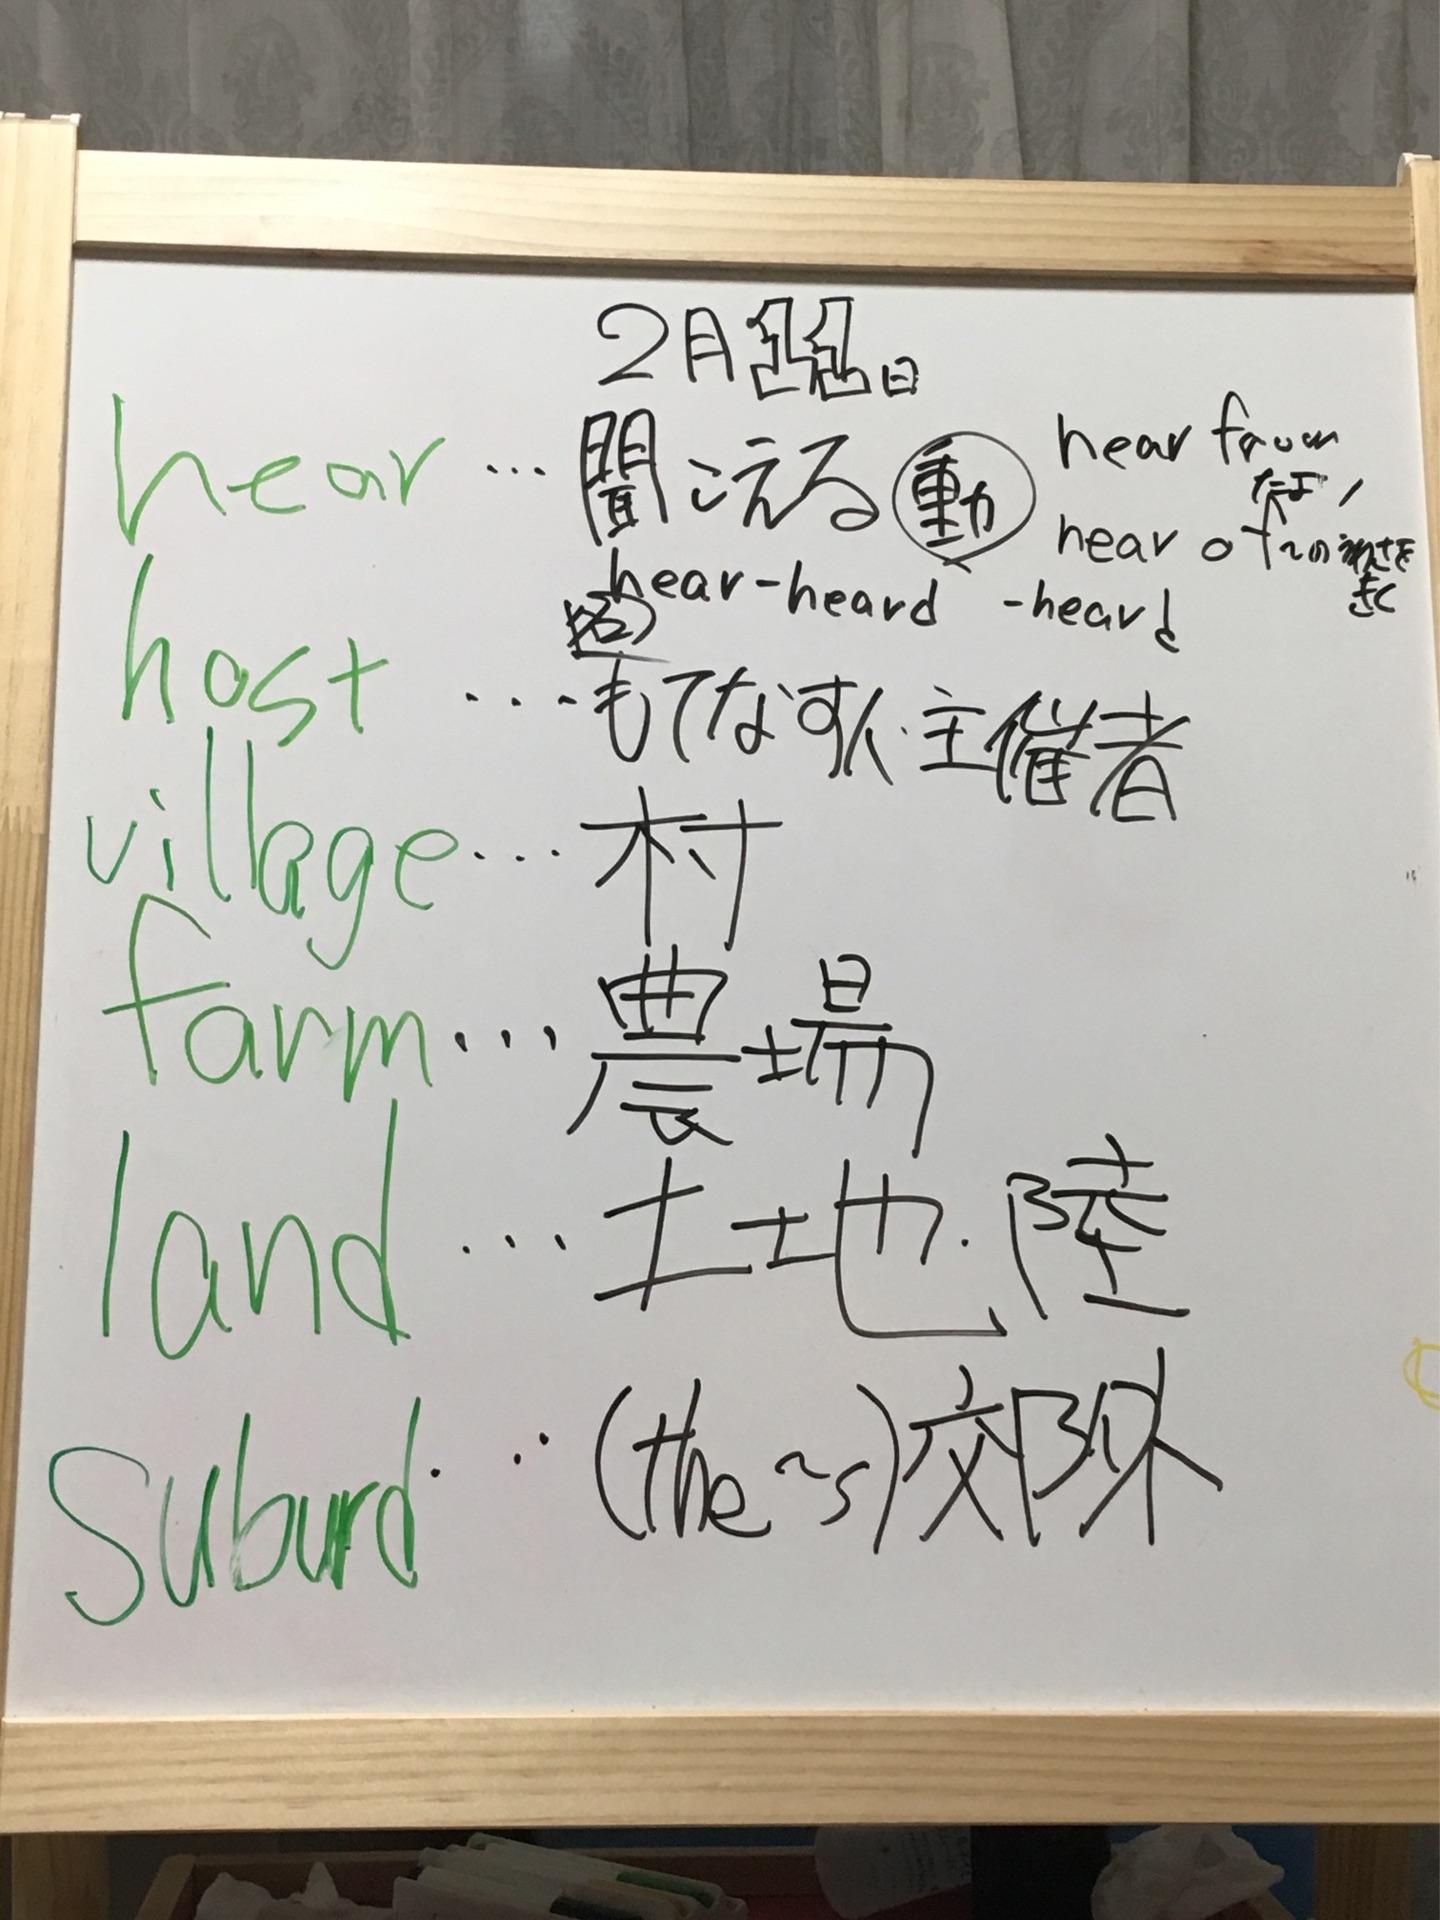 2月11日
hear … 聞こえる 動 hear from
たより
hear of ~のうわさをきく
hear-heard -heard
host … もてなす人・主催者
village … 村
farm … 農場
land … 土地・陸
suburd … (the ~s) 郊外